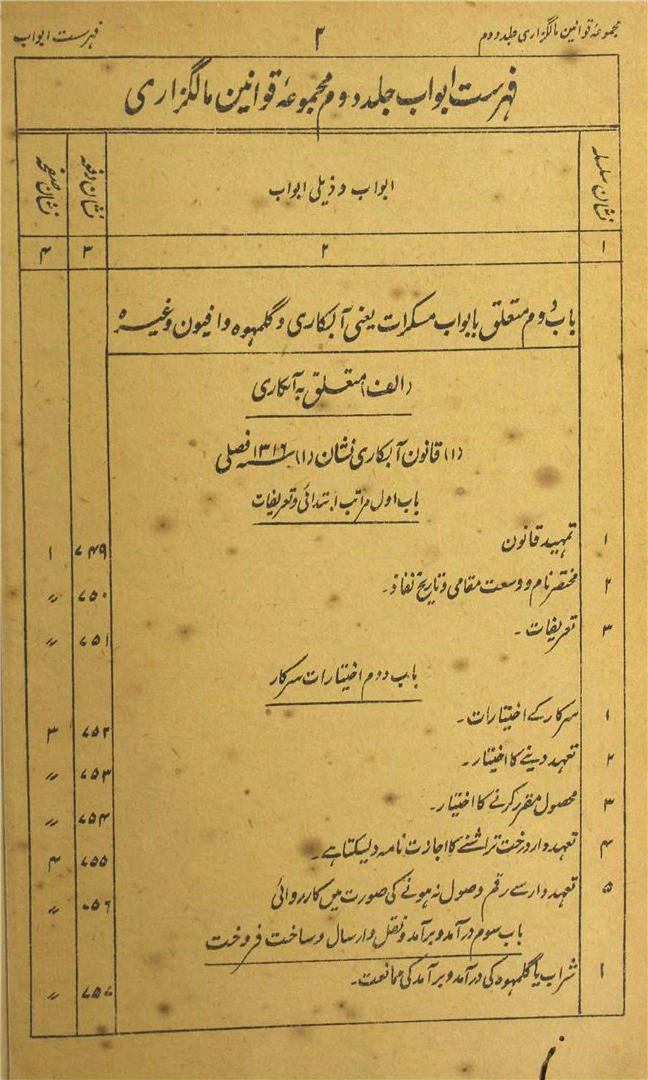 مجموعۂ قوانین مالگزاری جلد دوم ۲ فہرست ابواب
فہرست ابواب جلد دوم مجموعۂ قوانین مالگزاری
نشان سلسلہ ابواب و ذیلی ابواب نشان دفعہ نشان صفحہ
۱ ۲ ۳ ۴
باب دوم متعلق بابواب مسکرات یعنی آبکاری و گلمہوہ و افیون وغیرہ
(الف) متعلق بہ آبکاری
(۱) قانون آبکاری نشان (۱) ۱۳۱۶ سنہ فصلی
باب اول مراتب ابتدائی و تعریفات
۱ تمہید قانون ۷۴۹ ۱
۲ مختصر نام و وسعت مقامی و تاریخ نفاذ۔ ۷۵۰ 〃
۳ تعریفات۔ ۷۵۱ 〃
باب دوم اختیارات سرکار
۱ سرکار کے اختیارات۔ ۷۵۲ ۳
۲ تعہد دینے کا اختیار۔ ۷۵۳ 〃
۳ محصول مقرر کرنے کا اختیار۔ ۷۵۴ 〃
۴ تعہددار درخت تراشنے کا اجازت نامہ دیسکتا ہے۔ ۷۵۵ ۴
۵ تعہددار سے رقم وصول نہ ہونے کی صورت میں کارروائی ۷۵۶ 〃
باب سوم درآمد و برآمد و نقل و ارسال و ساخت فروخت
۱ شراب یا گلمہوہ کی درآمد و برآمد کی ممانعت۔ ۷۵۷ 〃